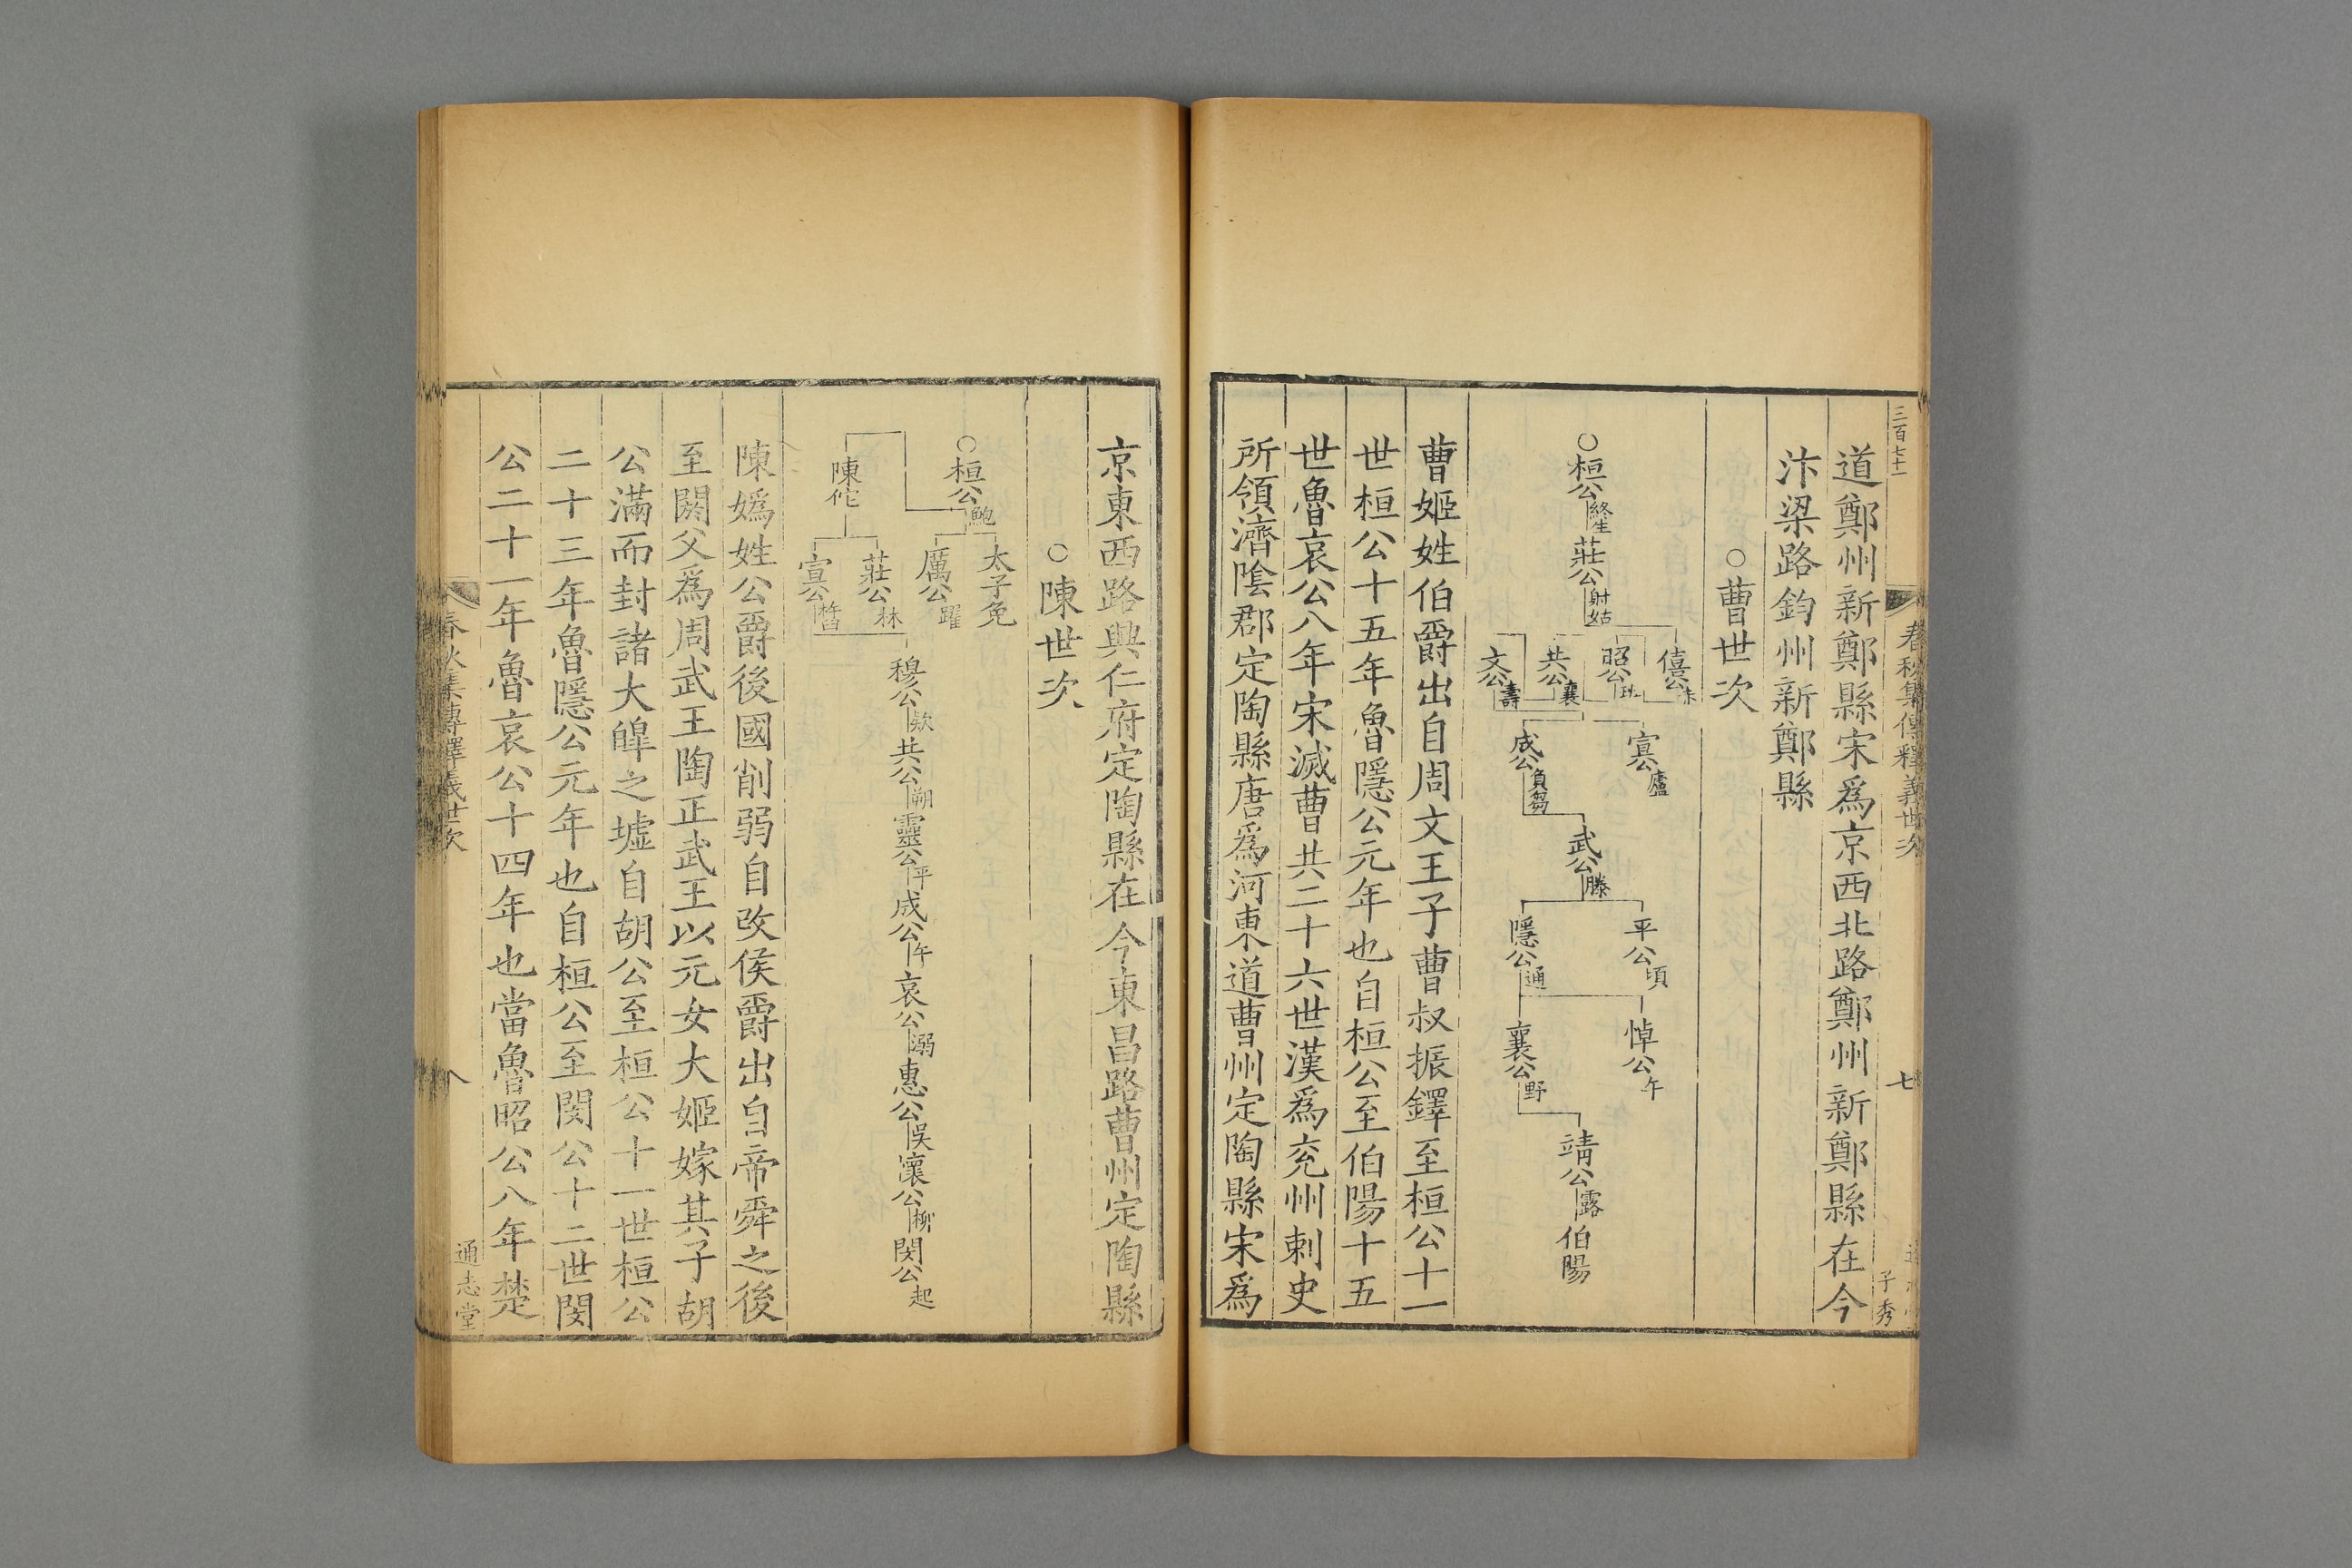 三百七十一
春秋集傳釋義世次
七
子秀
道鄭州新鄭縣宋爲京西北路鄭州新鄭縣在今
汴梁路鈞州新鄭縣
○曹世次
○桓公終生
莊公射姑
僖公
昭公班
共公襄
文公壽
宣公廬
成公負芻
武公滕
平公頃
隱公通
悼公午
襄公野
靖公露
伯陽
曹姬姓伯爵出自周文王子曹叔振鐸至桓公十一
世桓公十五年魯隱公元年也自桓公至伯陽十五
世魯哀公八年宋滅曹共二十六世漢爲兖州刺史
所領濟陰郡定陶縣唐爲河東道曹州定陶縣宋爲
京東西路興仁府定陶縣在今東昌路曹州定陶縣
○陳世次
○桓公鮑
陳佗
太子免
厲公躍
莊公林
宣公杵臼
穆公款
共公朔
靈公平
成公午
哀公溺
惠公吳
懷公柳
閔公起
陳嬀姓公爵後國削弱自攺侯爵出自帝舜之後
至閼父爲周武王陶正武王以元女大姬嫁其子胡
公滿而封諸大皥之墟自胡公至桓公十一世桓公
二十三年魯隱公元年也自桓公至閔公十二世閔
公二十一年魯哀公十四年也當魯昭公八年楚
春秋集傳釋義世次
通志堂